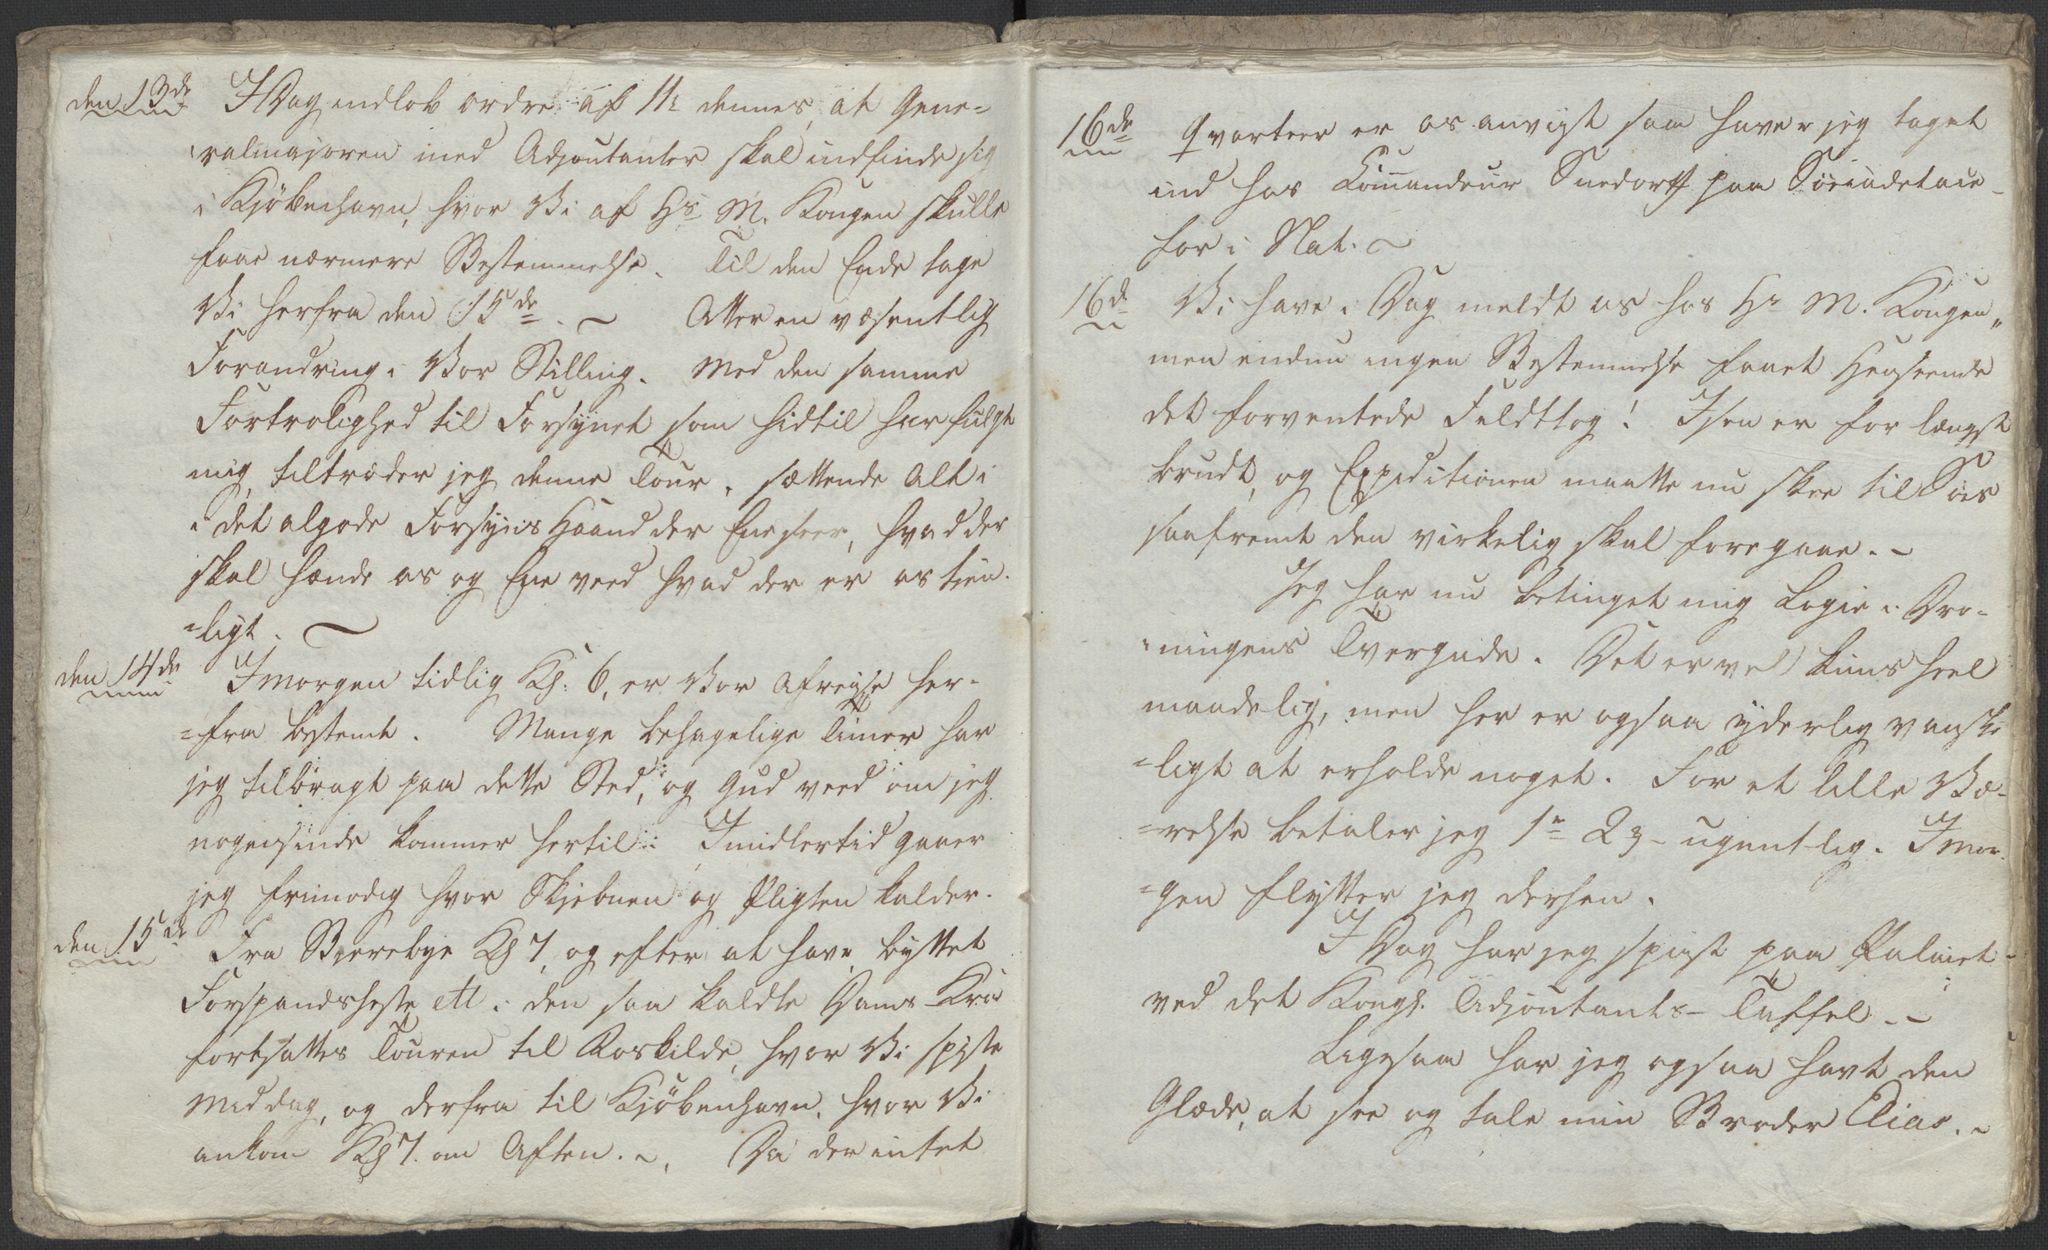 den 13de I Dag indlob ordre af 11e dennes, at Gene=
ralmajoren med Adjoutanter skal indfinde sig
i Kjøbenhavn, hvor Vi af Hs M. Kongen skulle
faae nærmere Bestemmelse. Til den Ende tage
Vi herfra den 15de. ~ Atter en væsentlig
Forandring i Vor Stilling. Med den samme
Fortrolighed til Forsynet som hidtil har fulgt
mig tiltræder jeg denne Tour, sættende Alt i
i det algode Forsyns Haand der Ene seer, hvad der
skal hænde os og Ene veed hvad der er os tien-
=ligt. ~
den 14de Imorgen tidlig Kl: 6, er Vor Afreyse her-
=fra bestemt. Mange behagelige Timer har
jeg tilbragt paa dette Sted, og Gud veed om jeg
nogensinde kommer hertil: Imidlertid gaaer
jeg frimodig hvor Skjebnen og Pligten kalder.
den 15de Fra Bjerebye Kl 7, og efter at have byttet
Forspandsheste ett. i den saa kaldte Dams-Kro
fortsattes Touren til Roskilde, hvor Vi spiste
Middag, og derfra til Kjøbenhavn, hvor Vi
ankom Kl 7. om Aften. ~. Da der intet
16de Qvarteer er os anvigst saa haver jeg taget
ind hos Commandeur Snedorff paa Søecadetacie-
for i Nat. ~
16de Vi have i Dag meldt os hos Hs M. Kongen,
men endnu ingen Bestemmelse faaet Henseende
det forventede Feldttog! Isen er for længst
brudt, og Expeditionen maatte nu skee til Søes
saafremt den virkelig skal foregaae. ~
Jeg har nu betinget mig Logie i Dro-
=ningens Tvergade. Det er vel kuns heel
maadelig, men her er ogsaa yderlig vanske
=ligt at erholde noget. For et lille Væ-
=relse betaler jeg 1n 2 3 - ugentlig. Imor-
=gen flytter jeg derhen.
I Dag har jeg spist paa Palaiet-
ved det Kongl. Adjoutants-Taffel. ~
Ligesaa har jeg ogsaa havt den
Glæde, at see og tale min Broder Elias. ~